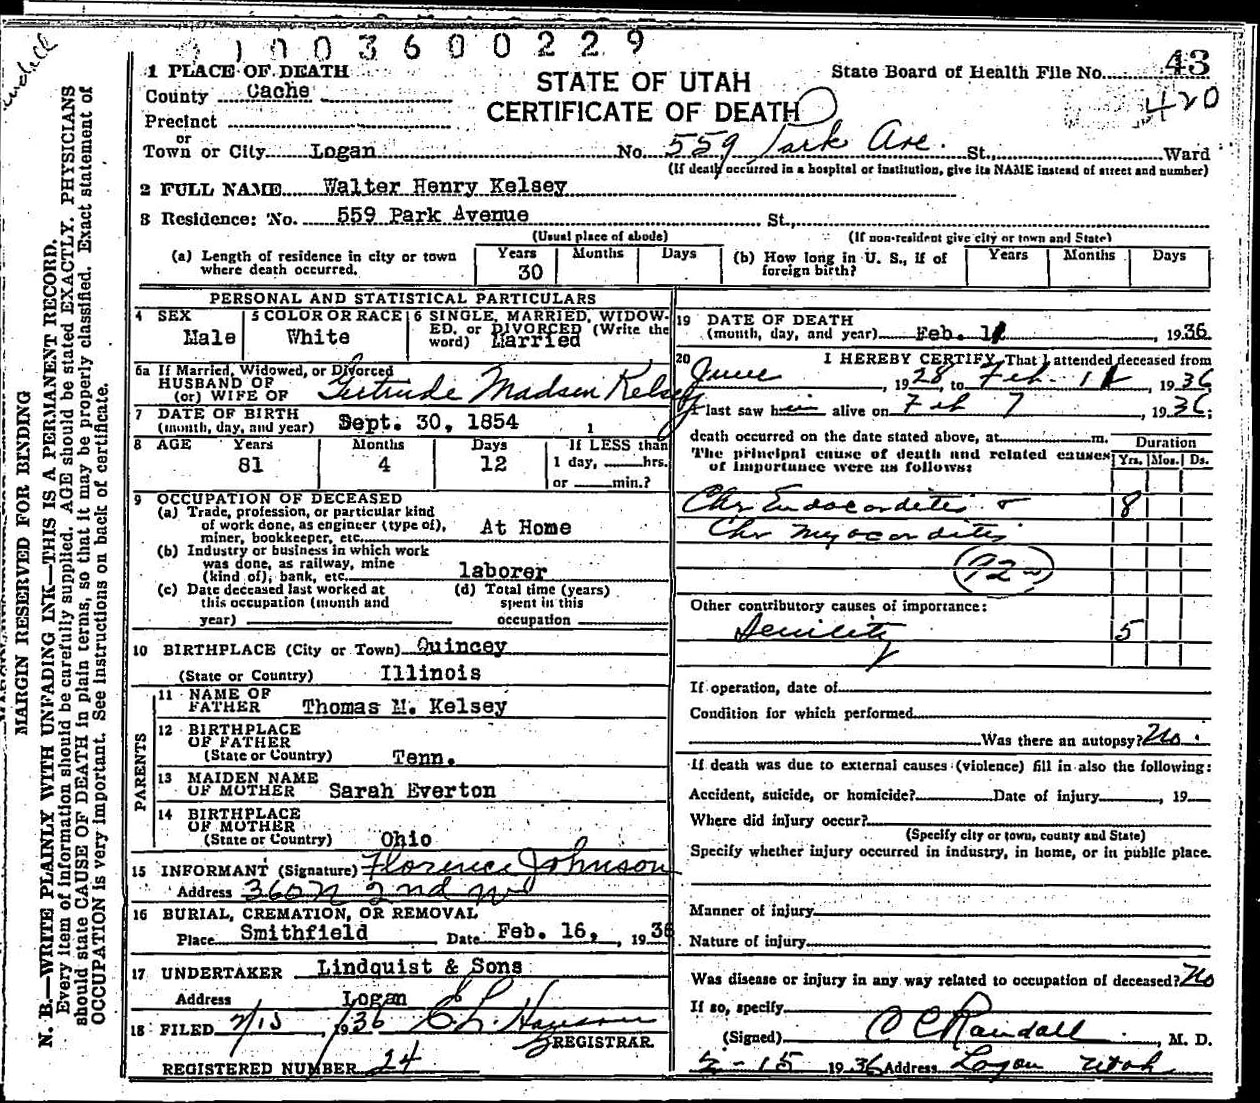 1003600229
43
420
STATE OF UTAH
CERTIFICATE OF DEATH
State Board of Health File No.
1 PLACE OF DEATH
County Cache
Precinct
or
Town or City Logan No. 559 Park Ave. St., Ward
(If death occurred in a hospital or institution, give its NAME instead of street and number)
2 FULL NAME Walter Henry Kelsey
3 Residence: No. 559 Park Avenue St.,
(Usual place of abode) (If non-resident give city or town and State)
(a) Length of residence in city or town where death occurred. Years 30 Months Days
(b) How long in U. S., if of foreign birth? Years Months Days
PERSONAL AND STATISTICAL PARTICULARS
4 SEX Male
5 COLOR OR RACE White
6 SINGLE, MARRIED, WIDOWED, or DIVORCED (Write the word) Married
6a If Married, Widowed, or Divorced
HUSBAND OF
(or) WIFE OF Gertrude Madsen Kelsey
7 DATE OF BIRTH
(month, day, and year) Sept. 30, 1854
8 AGE Years 81 Months 4 Days 12
If LESS than
1 day, hrs.
or min.?
9 OCCUPATION OF DECEASED
(a) Trade, profession, or particular kind
of work done, as engineer (type of),
miner, bookkeeper, etc. At Home
(b) Industry or business in which work
was done, as railway, mine
(kind of), bank, etc. laborer
(c) Date deceased last worked at
this occupation (month and
year)
(d) Total time (years)
spent in this
occupation
10 BIRTHPLACE (City or Town) Quincey
(State or Country) Illinois
PARENTS
11 NAME OF
FATHER Thomas M. Kelsey
12 BIRTHPLACE
OF FATHER
(State or Country) Tenn.
13 MAIDEN NAME
OF MOTHER Sarah Everton
14 BIRTHPLACE
OF MOTHER
(State or Country) Ohio
15 INFORMANT (Signature) Florence Johnson
Address 360 N 2nd W
16 BURIAL, CREMATION, OR REMOVAL
Place Smithfield Date Feb. 16, 1936
17 UNDERTAKER Lindquist & Sons
Address Logan
18 FILED 2/15, 1936
REGISTRAR.
REGISTERED NUMBER 24
19 DATE OF DEATH
(month, day, and year) Feb. 11 1936
20 I HEREBY CERTIFY, That I attended deceased from
June, 1928, to Feb. 11, 1936
I last saw him alive on Feb 7, 1936;
death occurred on the date stated above, at m.
The principal cause of death and related causes
of importance were as follows:
Duration
Yrs. Mos. Ds.
Chr Endocarditis & 8
Chr Myocarditis
Other contributory causes of importance:
Senility 5
If operation, date of
Condition for which performed
Was there an autopsy? No.
If death was due to external causes (violence) fill in also the following:
Accident, suicide, or homicide? Date of injury, 19
Where did injury occur?
(Specify city or town, county and State)
Specify whether injury occurred in industry, in home, or in public place.
Manner of injury
Nature of injury
Was disease or injury in any way related to occupation of deceased? No
If so, specify
(Signed) C C Randall, M. D.
2-15 1936 Address Logan Utah
MARGIN RESERVED FOR BINDING
N. B.—WRITE PLAINLY WITH UNFADING INK—THIS IS A PERMANENT RECORD.
Every item of information should be carefully supplied. AGE should be stated EXACTLY. PHYSICIANS
should state CAUSE OF DEATH in plain terms, so that it may be properly classified. Exact statement of
OCCUPATION is very important. See instructions on back of certificate.